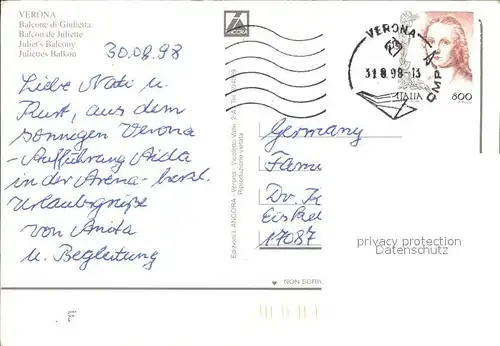 VERONA
Balcone di Giulietta
Balcon de Juliette
Juliet's Balcony
Juliettes Balkon
30.08.98
Liebe Nati u.
Kurt, aus dem
sonnigen Verona
- Aufführung Aida
in der Arena - herzl.
Urlaubsgrüße
von Anita
u. Begleitung
Edizioni L'ANCORA - Verona - Vicoletto Valle, 2-A
Riproduzione vietata
VERONA
31.8.98-13
ITALIA
800
Germany
Fam
Dr.
Eis
17087
privacy protection
Datenschutz
NON SCRIV
F